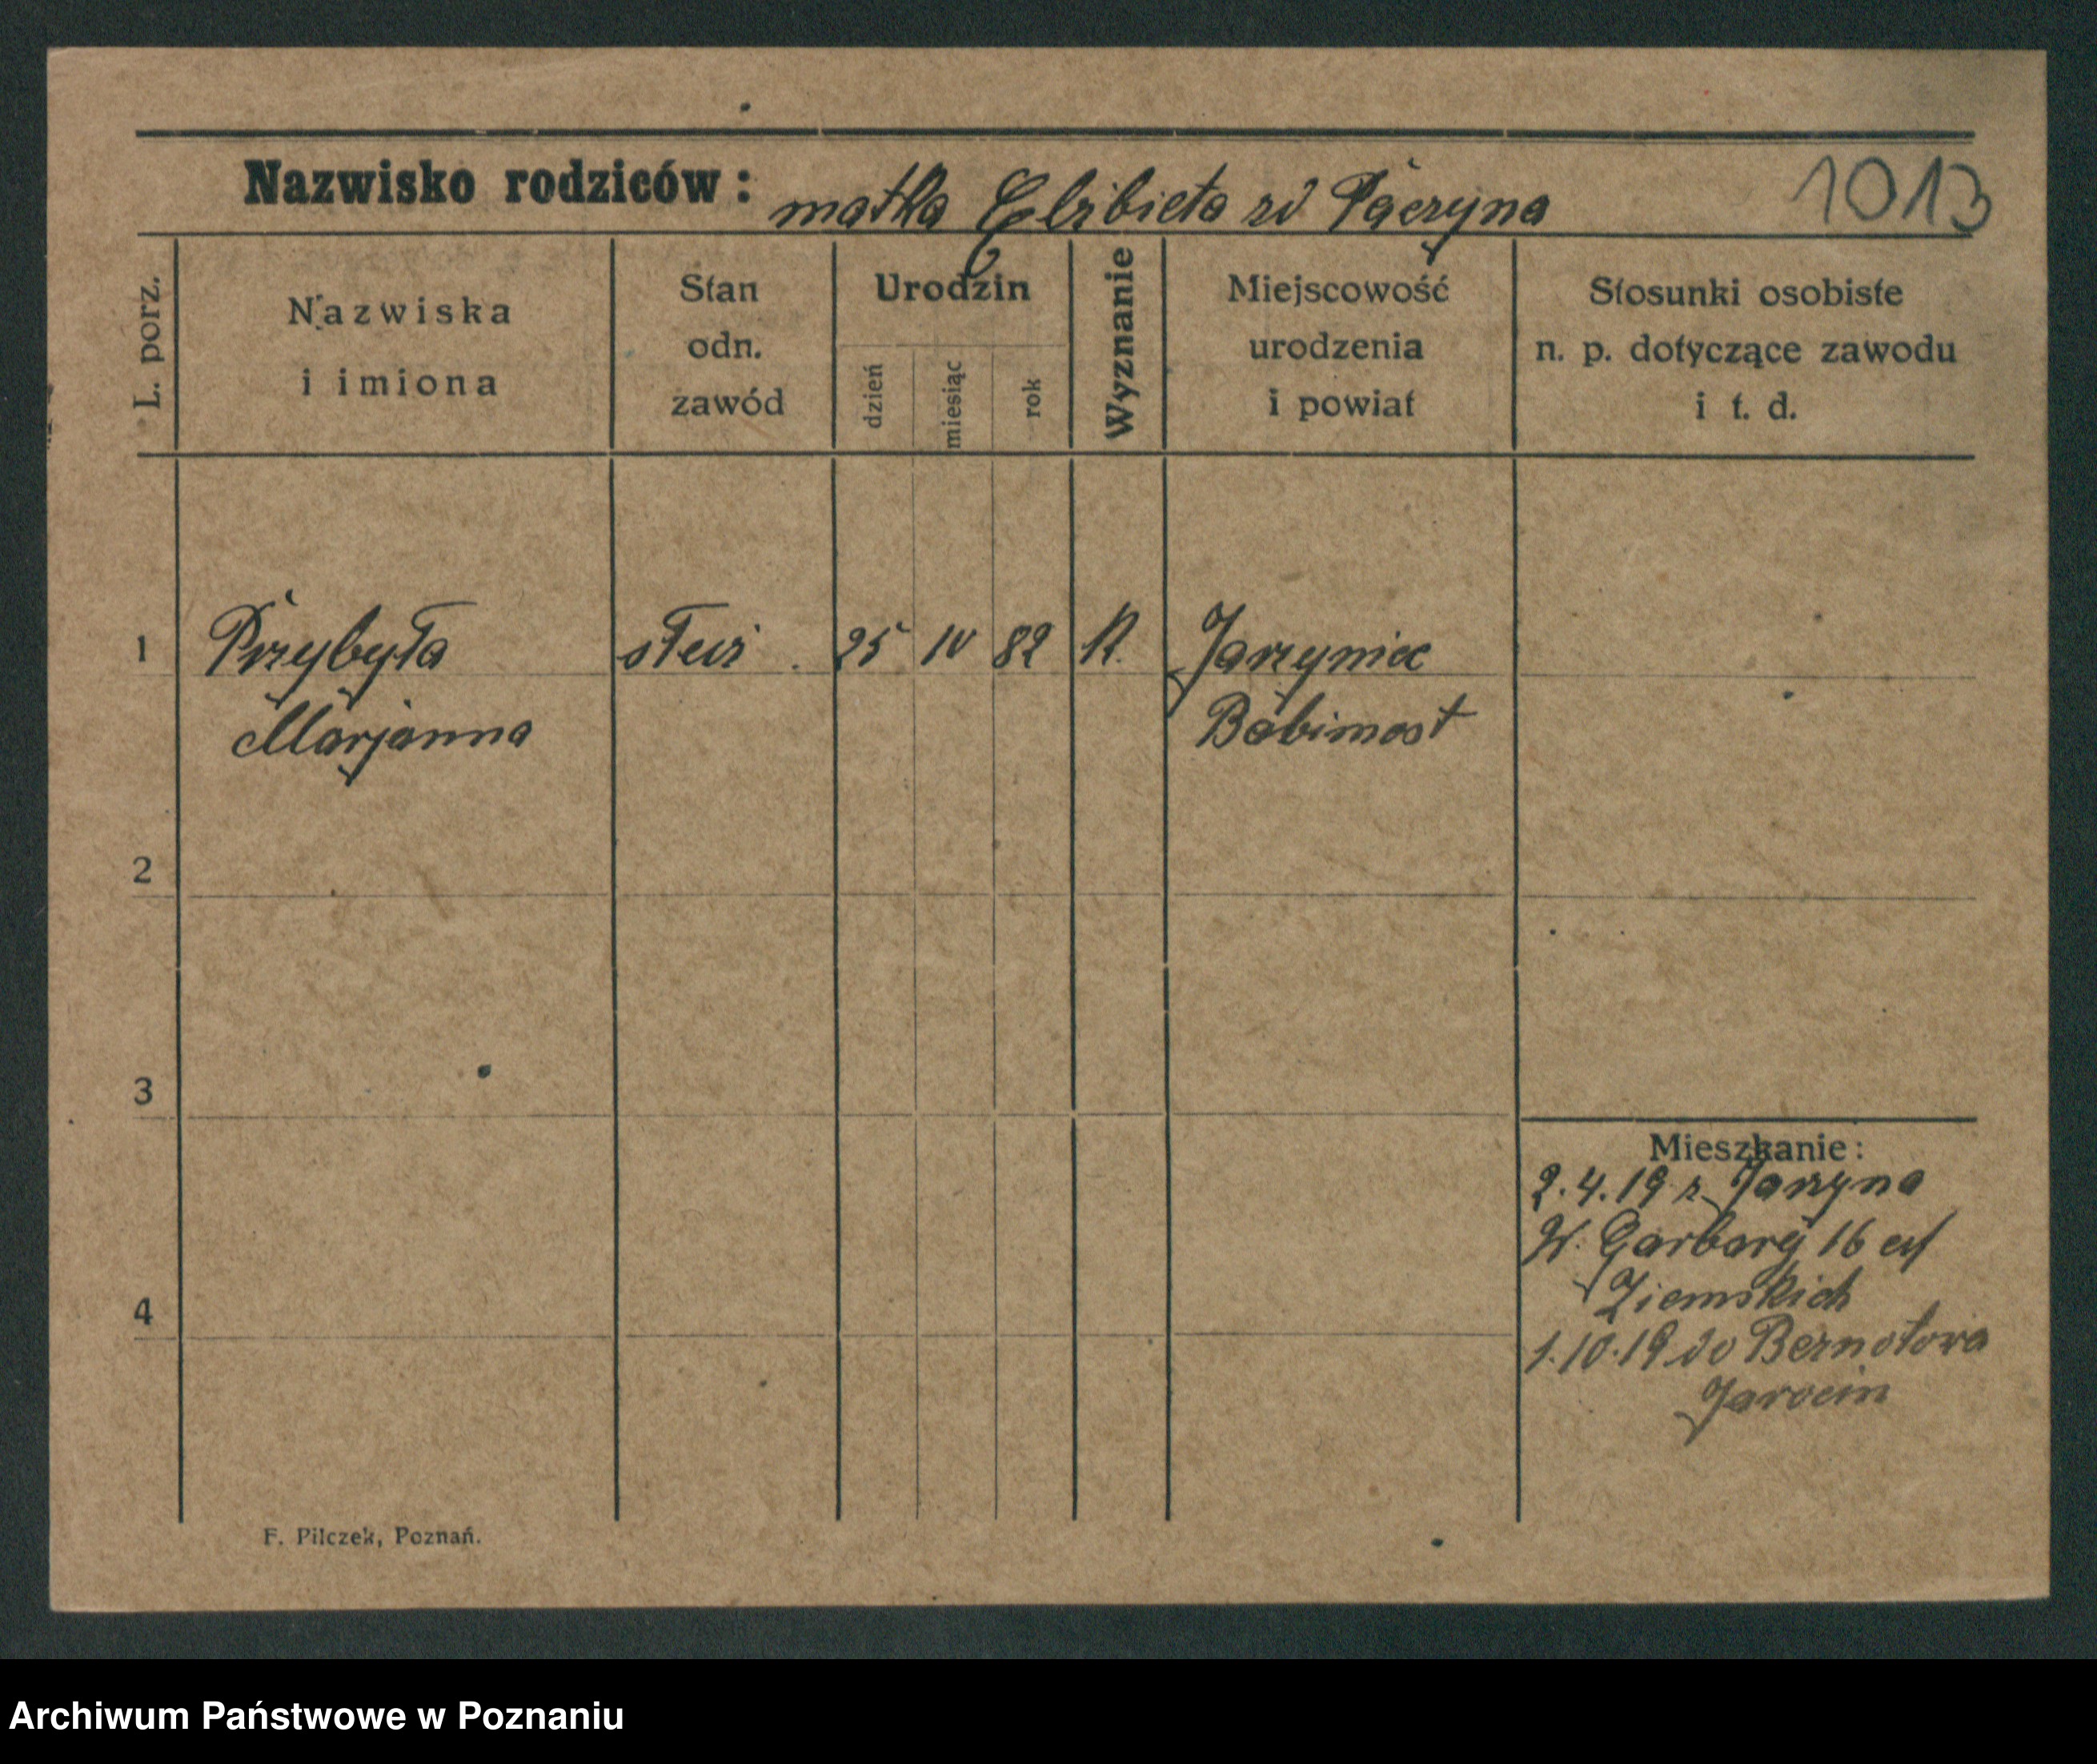 Nazwisko rodziców: matka Elżbieta zd Paczyna
1013
L. porz.
Nazwiska
i imiona
Stan
odn.
zawód
Urodzin
dzień
miesiąc
rok
Wyznanie
Miejscowość
urodzenia
i powiat
Stosunki osobiste
n. p. dotyczące zawodu
i t. d.
1 Przybyła służ. 25 IV 82 R. Jarzyniec
Marjanna Babimost
2
3
4
Mieszkanie:
2.4.19 z Jarzyna
W. Garbary 16
Ziemskich
1.10.19 do Bernotowa
Jarocin
F. Pilczek, Poznań.
Archiwum Państwowe w Poznaniu